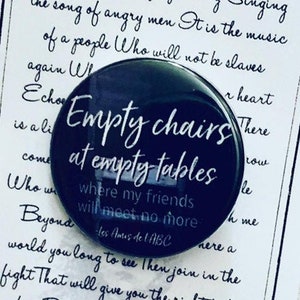 Singing
the song of angry men It is the music
of a people Who will not be slaves
again Wh
Echoe r heart
is a li There
com
Who w
Beyond me
world you long to see Then join in the
fight That will give you the right
Empty chairs
at empty tables
where my friends
will meet no more
Les Amis de l'ABC